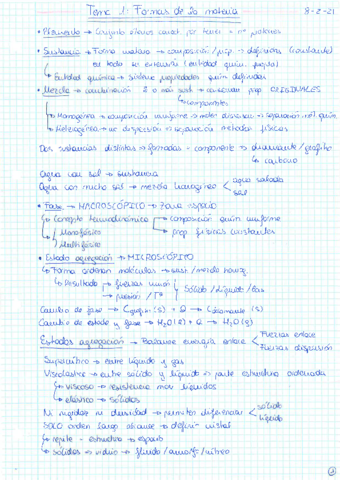 Tema 1: Formas de la materia 8-2-21
• Elemento → Conjunto átomos caract. por tener = nº protones
• Sustancia → Forma materia → composición / prop. → definidas (constante)
en toda su extensión (entidad quím. propia)
↳ Entidad química → sistema propiedades quím. definidas
• Mezcla → combinación 2 o más sust → conservan prop. ORIGINALES
↳ componentes
Homogénea → composición uniforme → separación
Heterogénea → dispersión → separación métodos físicos
Dos sustancias distintas → formadas = componente → diamante / grafito
↳ carbono
Agua con sal → sustancia
Agua con mucha sal → mezcla homogénea < agua salada
sal
• Fase → MACROSCÓPICO → zona espacio
↳ Concepto termodinámico → composición quím uniforme
↳ Monofásico → prop. físicas constantes
↳ Multifásico
• Estado agregación → MICROSCÓPICO
↳ Forma ordenan moléculas → sust. / mezcla homog.
↳ Resultado → fuerzas unión
→ presión / Tª
Sólido / Líquido / Gas
Cambio de fase → C grafito (s) + Q → C diamante (s)
Cambio de estado y fase → H2O (l) + Q → H2O (g)
Estados agregación → Balance energía entre < Fuerzas enlace
Fuerzas dispersión
Supercrítico → entre líquido y gas
Viscoelástico → entre sólido y líquido → parte estructura ordenada
↳ viscoso → resistencia más líquidos
↳ elástico → sólidos
Ni rigidez ni densidad → permiten diferenciar < sólido
líquido
SOLO orden largo alcance → definir cristal
↳ repite - estructura → espacio
↳ sólidos → vidrio → fluido / amorf. / vítreo